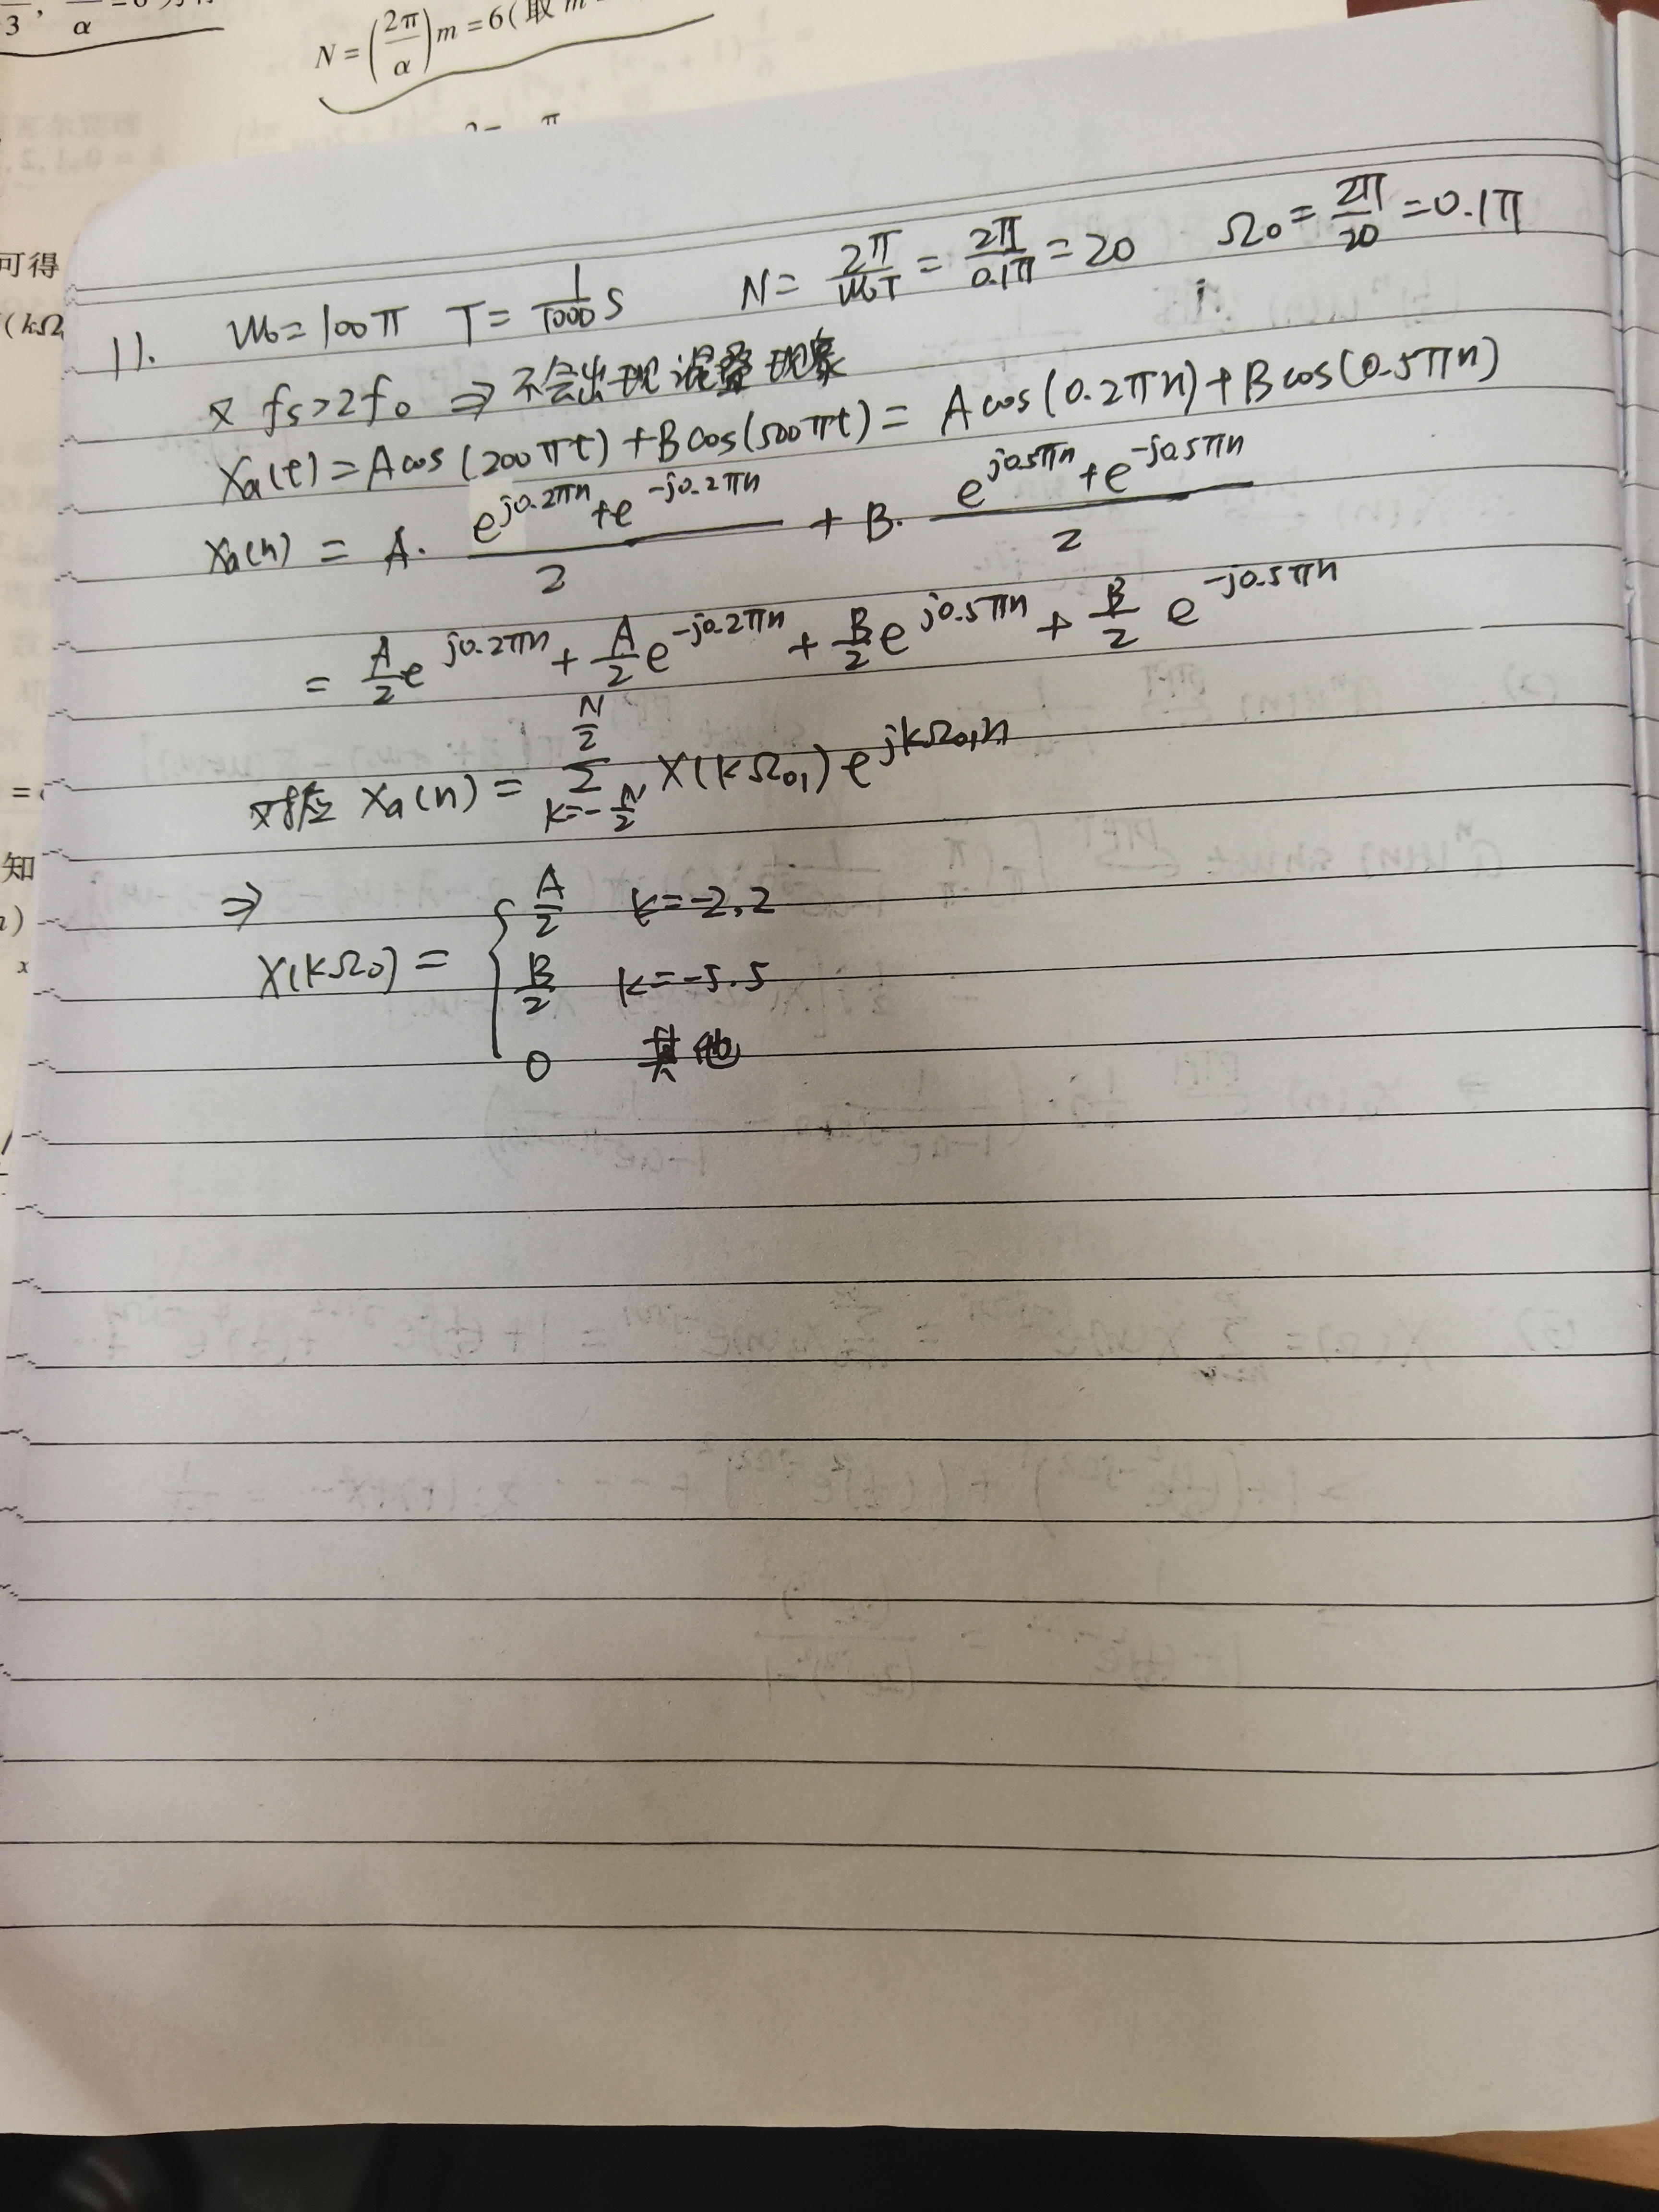 3 , α
N = (2π/α) m = 6 ( 取 m
可得
( kΩ
知
11. ω₀ = 100π T = 1/1000 s N = 2π/ω₀T = 2π/0.1π = 20 Ω₀ = 2π/20 = 0.1π
又 fs > 2f₀ ⇒ 不会出现混叠现象
Xa(t) = A cos (200πt) + B cos (500πt) = A cos (0.2πn) + B cos (0.5πn)
Xa(n) = A · (e^{j0.2πn} + e^{-j0.2πn})/2 + B · (e^{j0.5πn} + e^{-j0.5πn})/2
= A/2 e^{j0.2πn} + A/2 e^{-j0.2πn} + B/2 e^{j0.5πn} + B/2 e^{-j0.5πn}
对应 Xa(n) = Σ_{k=-N/2}^{N/2} X(kΩ₀₁) e^{jkΩ₀₁n}
⇒
X(kΩ₀) = { A/2 k=-2,2
B/2 k=-5.5
0 其他